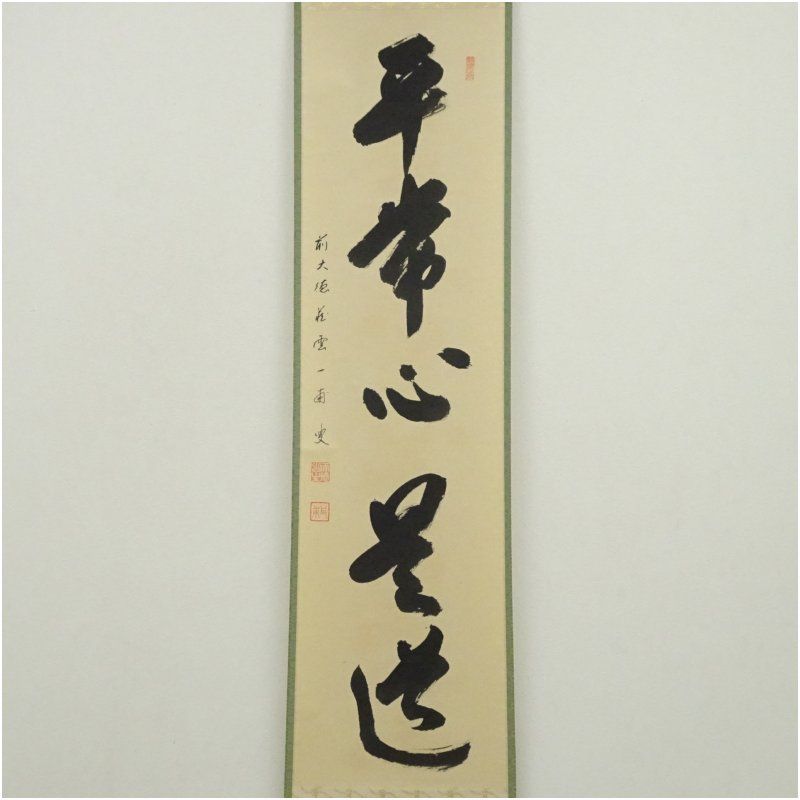 平常心是道
前大徳 雲一甫叟